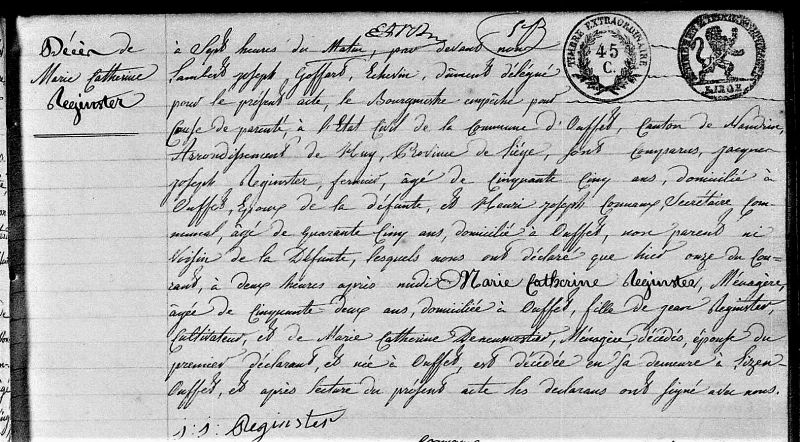 Décès de
Marie Catherine
Reginster
TIMBRE EXTRAORDINAIRE
45
C.
LIEGE
à Sept heures du Matin, par devant nous
Lambert joseph Goffart, Echevin, dûment délégué
pour le présent acte, le Bourgmestre empêché pour
Cause de parenté, à l'Etat Civil de la Commune d'Ouffet, Canton de Nandrin,
Arrondissement de Huy, Province de Liége, sont comparus, jacques
joseph Reginster, fermier, âgé de Cinquante Cinq ans, domicilié à
Ouffet, Epoux de la défunte, et Henri joseph Connaux, Secrétaire Com-
munal, âgé de quarante Cinq ans, domicilié à Ouffet, non parent ni
Voisin de la Défunte, lesquels nous ont déclaré que hier onze du Cou-
rant, à deux heures après midi Marie Catherine Reginster, Ménagère,
âgée de Cinquante deux ans, domiciliée à Ouffet, fille de jean Reginster,
Cultivateur, et de Marie Catherine Deneumostier, Ménagère décédés, épouse du
premier déclarant, et née à Ouffet, est décédée en sa demeure à
Ouffet, et après lecture du présent acte les déclarans ont signé avec nous.
s: s: Reginster